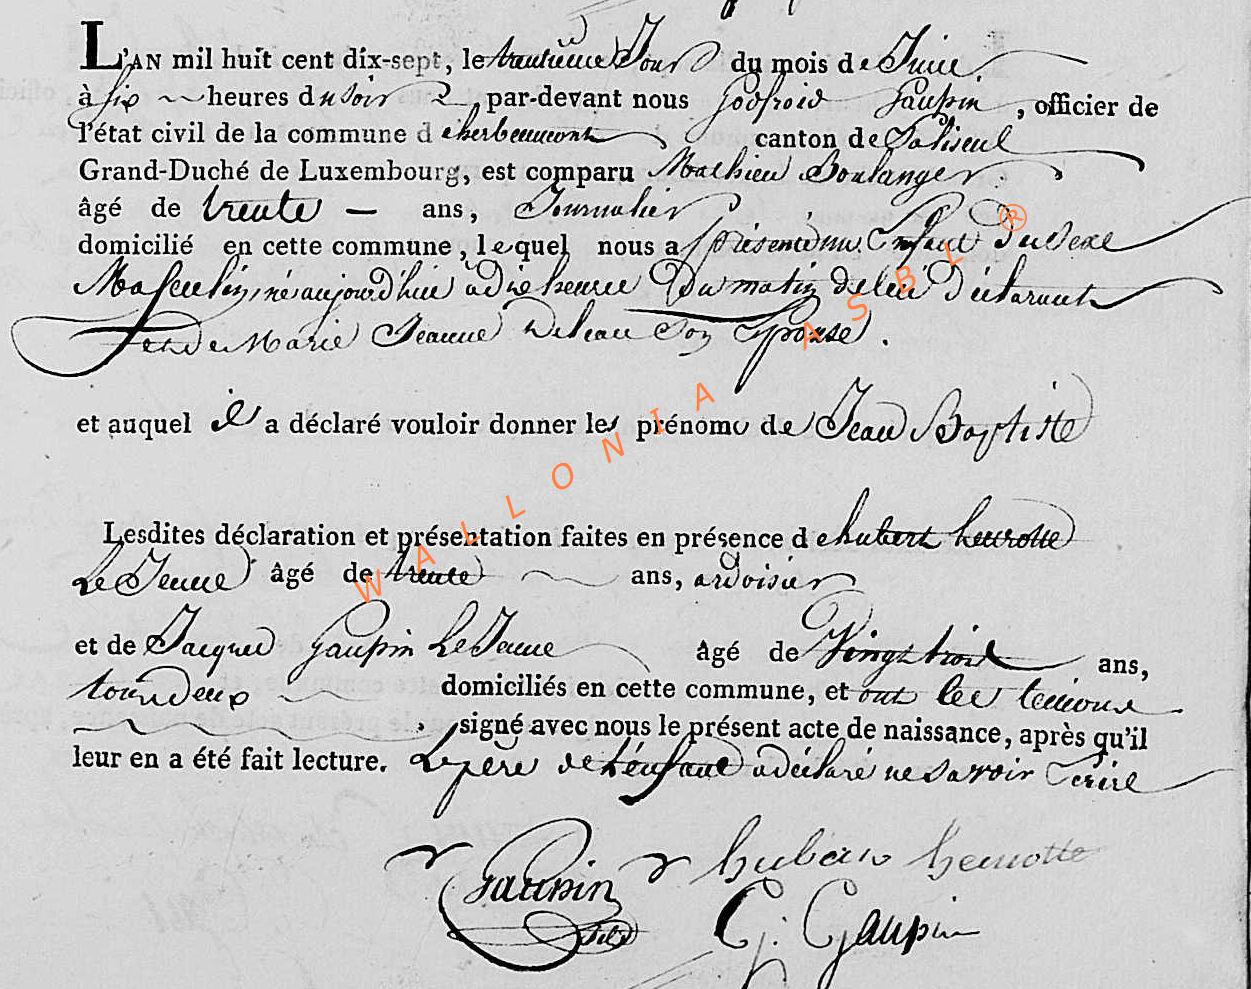 L'AN mil huit cent dix-sept, le trentieme Jour du mois de Juin
à six heures du soir par-devant nous Godfroid Gaupin, officier de
l'état civil de la commune d'herbeumont canton de Paliseul
Grand-Duché de Luxembourg, est comparu Mathieu Boulanger
âgé de trente — ans, Journalier
domicilié en cette commune, lequel nous a présenté un Enfant du Sexe
Masculin, né aujourd'hui à dix heures Du matin de lui Déclarant
et de Marie Jeanne son Epouse.
et auquel il a déclaré vouloir donner les prénoms de Jean Baptiste
Lesdites déclaration et présentation faites en présence de hubert heurotte
Le Jeune âgé de trente ans, ardoisier
et de Jacques Gaupin Le Jeune âgé de Vingt trois ans,
tous deux domiciliés en cette commune, et ont les temoins
signé avec nous le présent acte de naissance, après qu'il
leur en a été fait lecture. Le père de l'enfant a déclaré ne savoir Ecrire
Gaupin hubert heurotte
G. Gaupin
WALLONIA ASBL ®